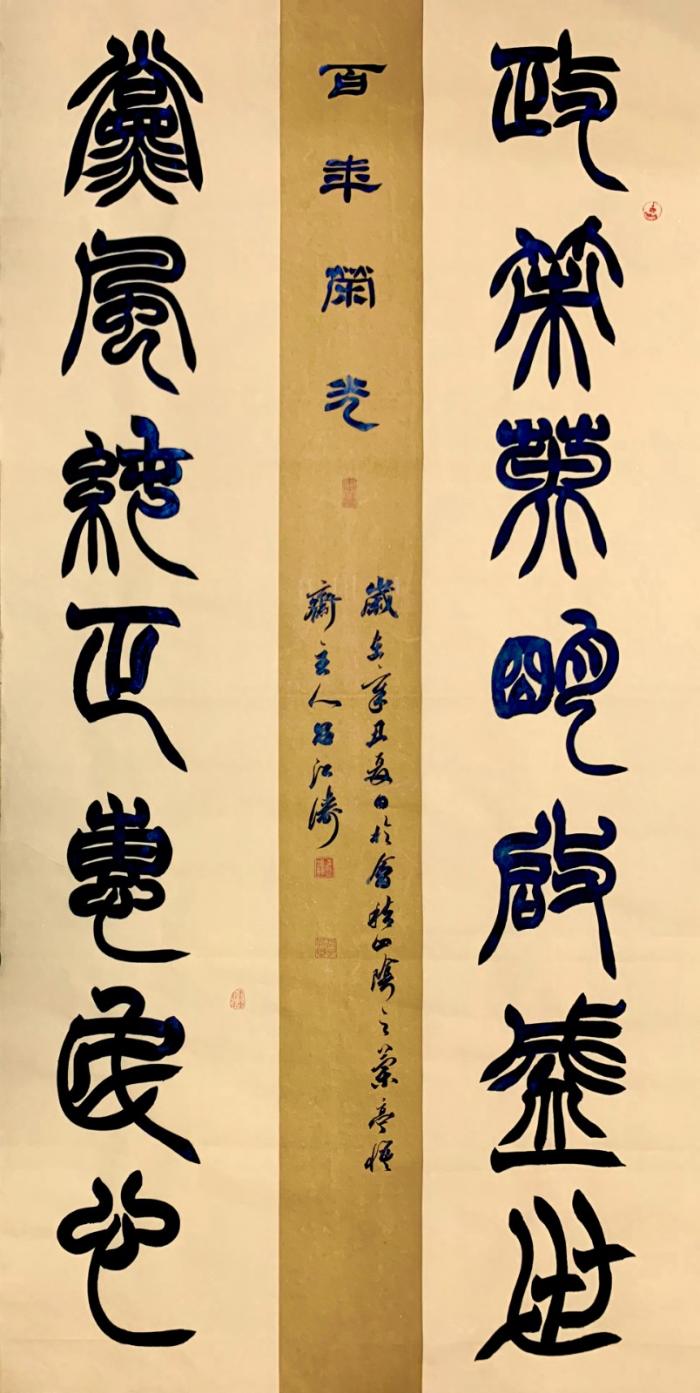 政策英明啟盛世
百年榮光
歲在辛丑夏日於會稽山陰之蘭亭
齋主人呂江濤
黨風純正惠民心